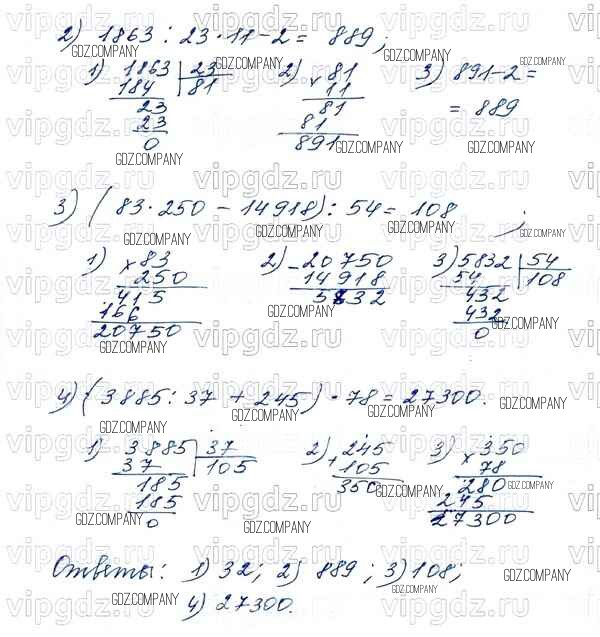 2) 1863 : 23 · 11 − 2 = 889;
1) 1863 | 23
184 | 81
23
23
0
2) × 81
11
81
81
891
3) 891 − 2 =
= 889
3) (83 · 250 − 14918) : 54 = 108;
1) × 83
250
415
166
20750
2) − 20750
14918
5832
3) 5832 | 54
54 | 108
432
432
0
4) (3885 : 37 + 245) · 78 = 27300.
1) 3885 | 37
37 | 105
185
185
0
2) + 245
105
350
3) × 350
78
280
245
27300
Ответы: 1) 32; 2) 889; 3) 108;
4) 27300.
vipgdz.ru
GDZ.COMPANY